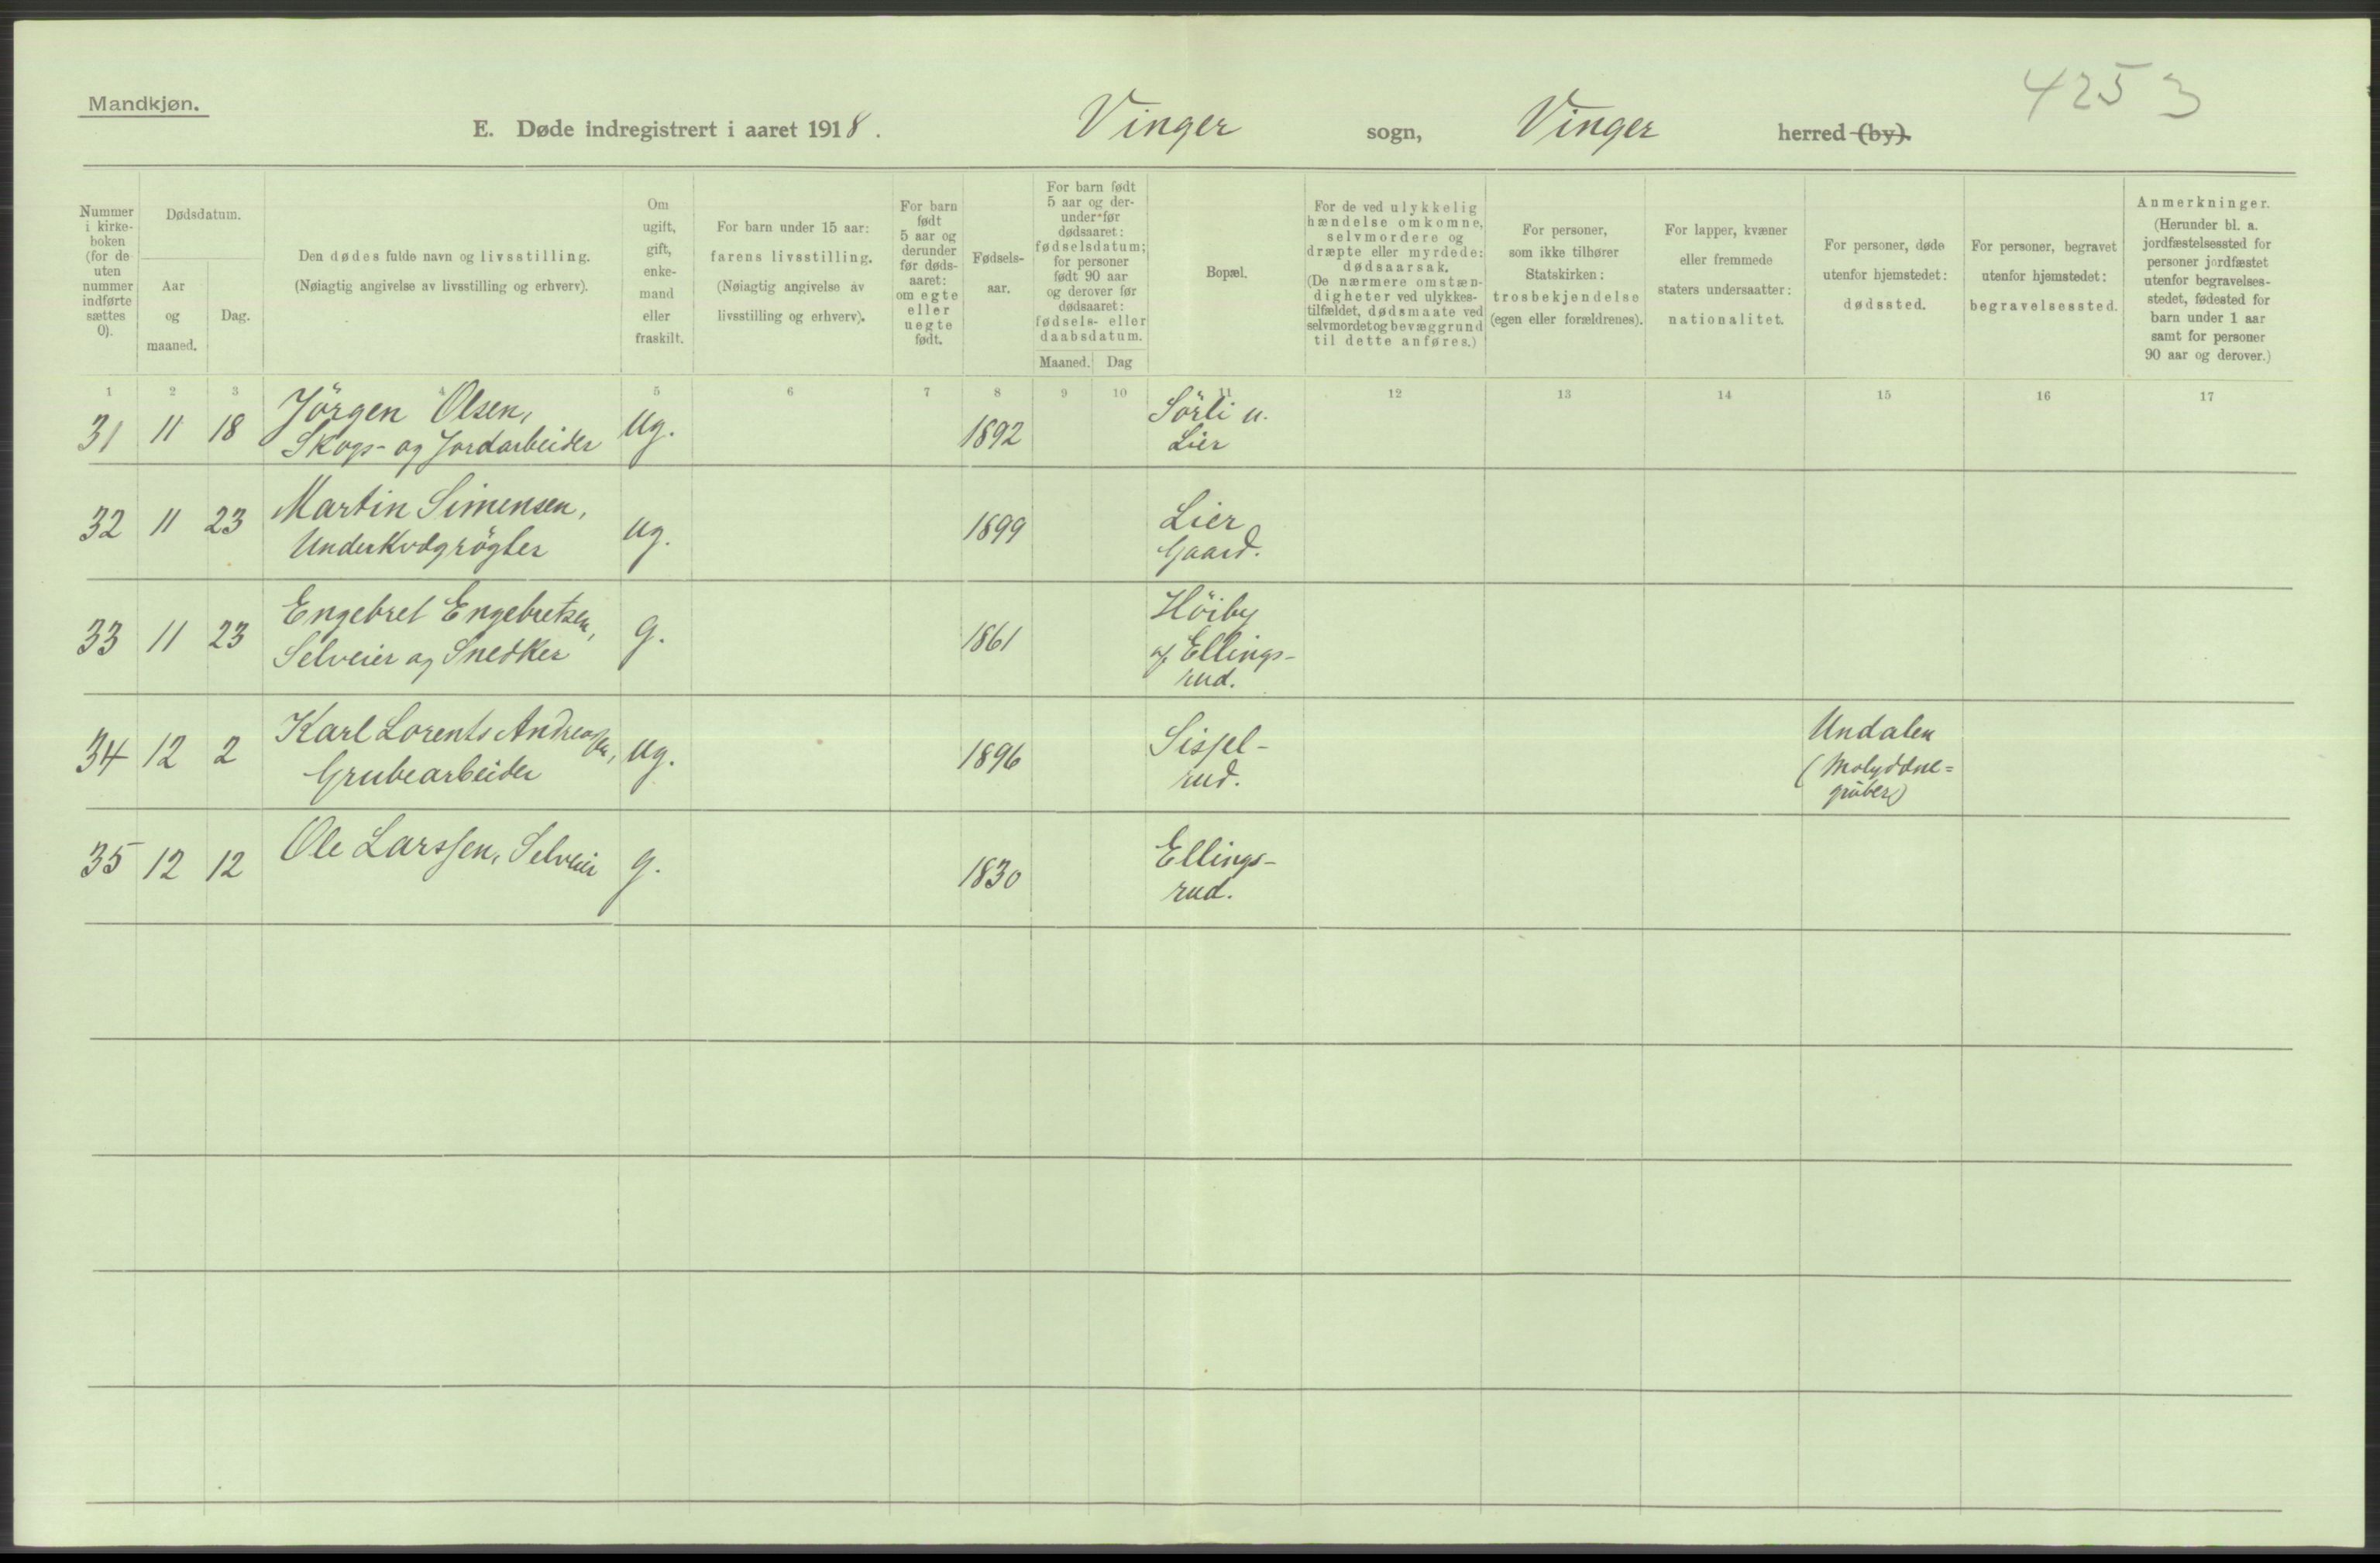 Mandkjøn.
4253
E. Døde indregistrert i aaret 1918. Vinger sogn, Vinger herred (by).
Nummer
i kirke-
boken
(for de
uten
nummer
indførte
sættes
0).
Dødsdatum.
Aar
og
maaned.
Dag.
Den dødes fulde navn og livsstilling.
(Nøiagtig angivelse av livsstilling og erhverv).
Om
ugift,
gift,
enke-
mand
eller
fraskilt.
For barn under 15 aar:
farens livsstilling.
(Nøiagtig angivelse av
livsstilling og erhverv).
For barn
født
5 aar og
derunder
før døds-
aaret:
om egte
eller
uegte
født.
Fødsels-
aar.
For barn født
5 aar og der-
under før
dødsaaret:
fødselsdatum;
for personer
født 90 aar
og derover før
dødsaaret:
fødsels- eller
daabsdatum.
Maaned. Dag
Bopæl.
For de ved ulykkelig
hændelse omkomne,
selvmordere og
dræpte eller myrdede:
dødsaarsak.
(De nærmere omstæn-
digheter ved ulykkes-
tilfældet, dødsmaate ved
selvmordet og bevæggrund
til dette anføres.)
For personer,
som ikke tilhører
Statskirken:
trosbekjendelse
(egen eller forældrenes).
For lapper, kvæner
eller fremmede
staters undersaatter:
nationalitet.
For personer, døde
utenfor hjemstedet:
dødssted.
For personer, begravet
utenfor hjemstedet:
begravelsessted.
Anmerkninger.
(Herunder bl. a.
jordfæstelsessted for
personer jordfæstet
utenfor begravelses-
stedet, fødested for
barn under 1 aar
samt for personer
90 aar og derover.)
1 2 3 4 5 6 7 8 9 10 11 12 13 14 15 16 17
31 11 18 Jörgen Olsen, ug. 1892 Sörli u.
Skogs- og Jordarbeider Lier
32 11 23 Martin Simensen, ug. 1899 Lier
Underkvægrögter Gaard.
33 11 23 Engebret Engebretsen, g. 1861 Höiby
Selveier og Snedker af Ellings-
rud.
34 12 2 Karl Lorents Andreassen, ug. 1896 Sispel- Undalen
Grubearbeider rud. (Molyddne=
gruber)
35 12 12 Ole Larssen, Selveier g. 1830 Ellings-
rud.